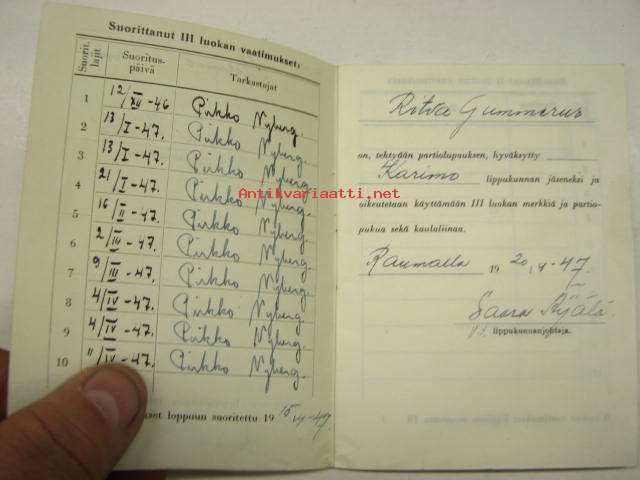 Suorittanut III luokan vaatimukset:
Suorit. lajit. Suoritus-päivä Tarkastajat
1 12/XII -46 Pirkko Nyberg.
2 13/I -47. Pirkko Nyberg.
3 13/I -47. Pirkko Nyberg.
4 21/I -47. Pirkko Nyberg.
5 16/II -47. Pirkko Nyberg.
6 2/III -47. Pirkko Nyberg.
7 9/III -47. Pirkko Nyberg.
8 4/IV -47. Pirkko Nyberg.
9 4/IV -47. Pirkko Nyberg.
10 11/IV -47. Pirkko Nyberg.
loppuun suoritettu 19
Ritva Gummerus
on, tehtyään partiolupauksen, hyväksytty
Karimo lippukunnan jäseneksi ja
oikeutetaan käyttämään III luokan merkkiä ja partio-
pukua sekä kaulaliinaa.
Raumalla 19 20/V -47.
Saara
lippukunnanjohtaja.
Antikvariaatti.net